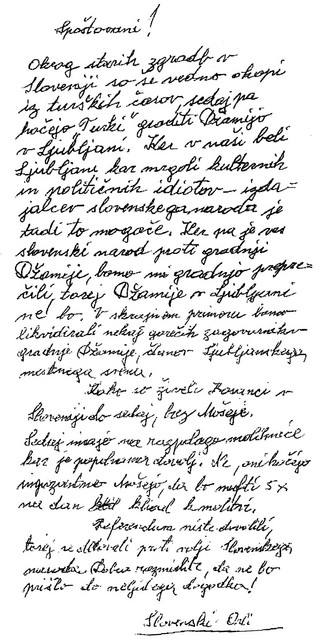 Spoštovani!
Okrog starih zgradb v
Sloveniji so še vedno okopi
iz turških časov sedaj pa
hočejo "Turki" graditi Džamijo
v Ljubljani. Ker v naši beli
Ljubljani kar mrgoli kulturnih
in političnih idiotov – izda-
jalcev slovenskega naroda je
tudi to mogoče. Ker pa je ves
slovenski narod proti gradnji
Džamije, bomo mi gradnjo prepre-
čili, torej Džamije v Ljubljani
ne bo. V skrajnem primeru bomo
likvidirali nekaj gorečih zagovornikov
gradnje Džamije, članov Ljubljanskega
mestnega sveta.
Kako so živeli Bosanci v
Sloveniji do sedaj, brez Mošeje.
Sedaj imajo na razpolago molilnice
kar je popolnoma dovolj. Ne, oni hočejo
impozantno Mošejo, da bo mufti 5x
na dan klical k molitvi.
Referenduma niste dovolili,
torej se odločali proti volji Slovenskega
naroda. Dobro razmislite, da ne bo
prišlo do neljubega dogodka!
Slovenski Orli